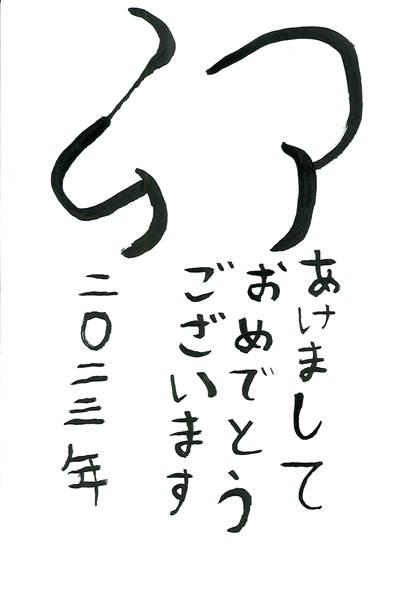 卯
あけまして
おめでとう
ございます
二〇二三年